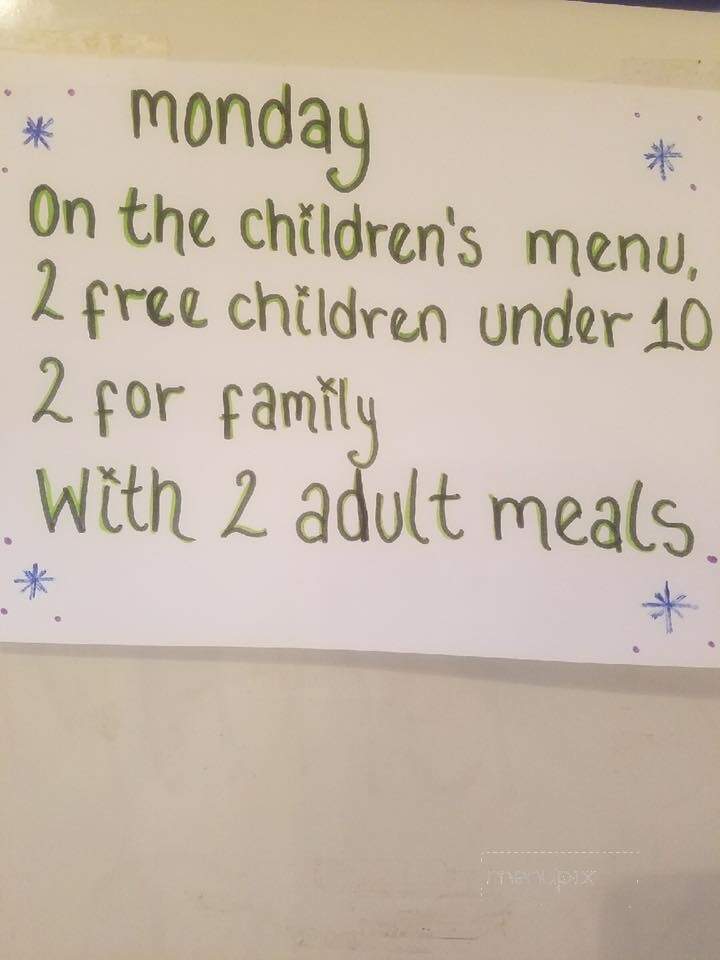 monday
On the children's menu.
2 free children under 10
2 for family
With 2 adult meals
menupix